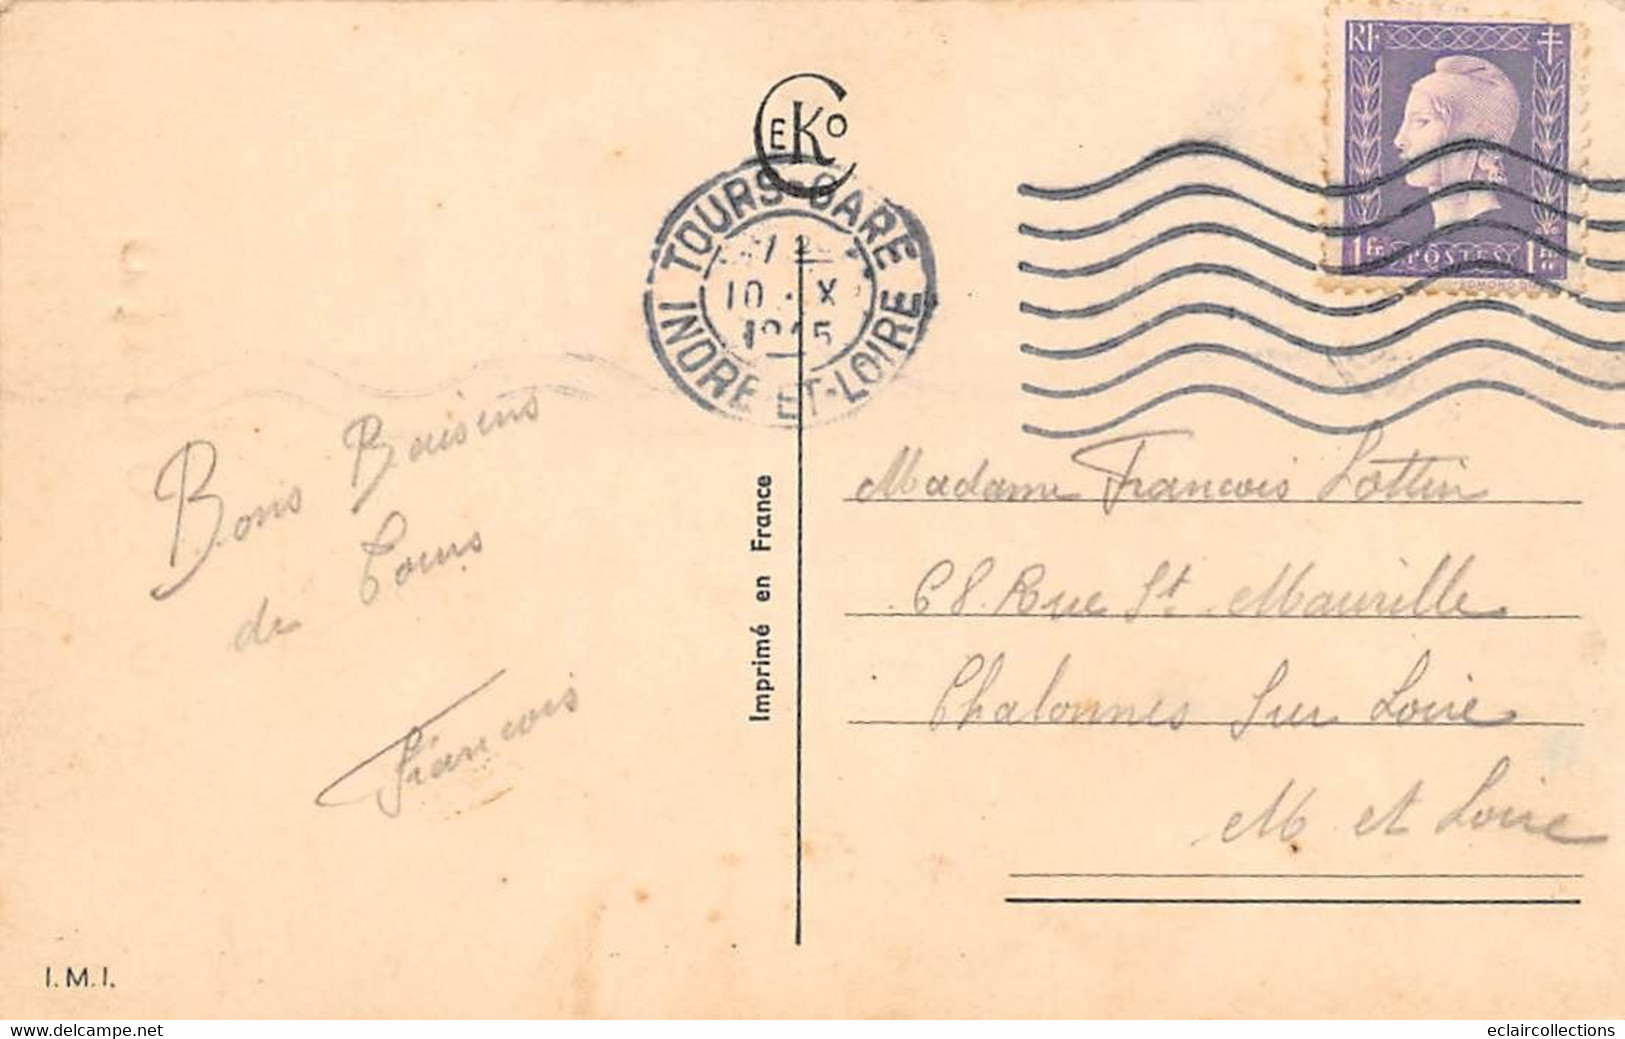 RF
CEKO
TOURS-GARE
10 · X
1945
INDRE-ET-LOIRE
1 fr POSTES 1
Bons Baisers
de Tours
François
Imprimé en France
Madame François Lottin
68 Rue St Maurille
Chalonnes Sur Loire
M et Loire
I.M.I.
www.delcampe.net
eclaircollections